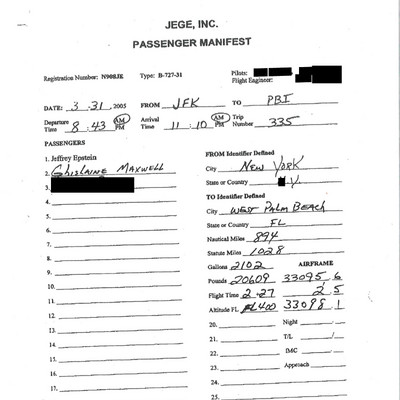 JEGE, INC.
PASSENGER MANIFEST
Registration Number: N908JE Type: B-727-31 Pilots:
Flight Engineer:
DATE: 3.31, 2005 FROM JFK TO PBI
Departure Time 8:43 AM PM Arrival Time 11:10 AM PM Trip Number 335
PASSENGERS
1. Jeffrey Epstein
2. Ghislaine Maxwell
3.
4.
5.
6.
7.
8.
9.
10.
11.
12.
13.
14.
15.
16.
17.
FROM Identifier Defined
City New York
State or Country
TO Identifier Defined
City West Palm Beach
State or Country FL
Nautical Miles 894
Statute Miles 1028
Gallons 2102 AIRFRAME
Pounds 20609 33095.6
Flight Time 2.27 2.5
Altitude FL 400 33098.1
20. Night
21. T/L /
22. IMC
23. Approach
24.
25.